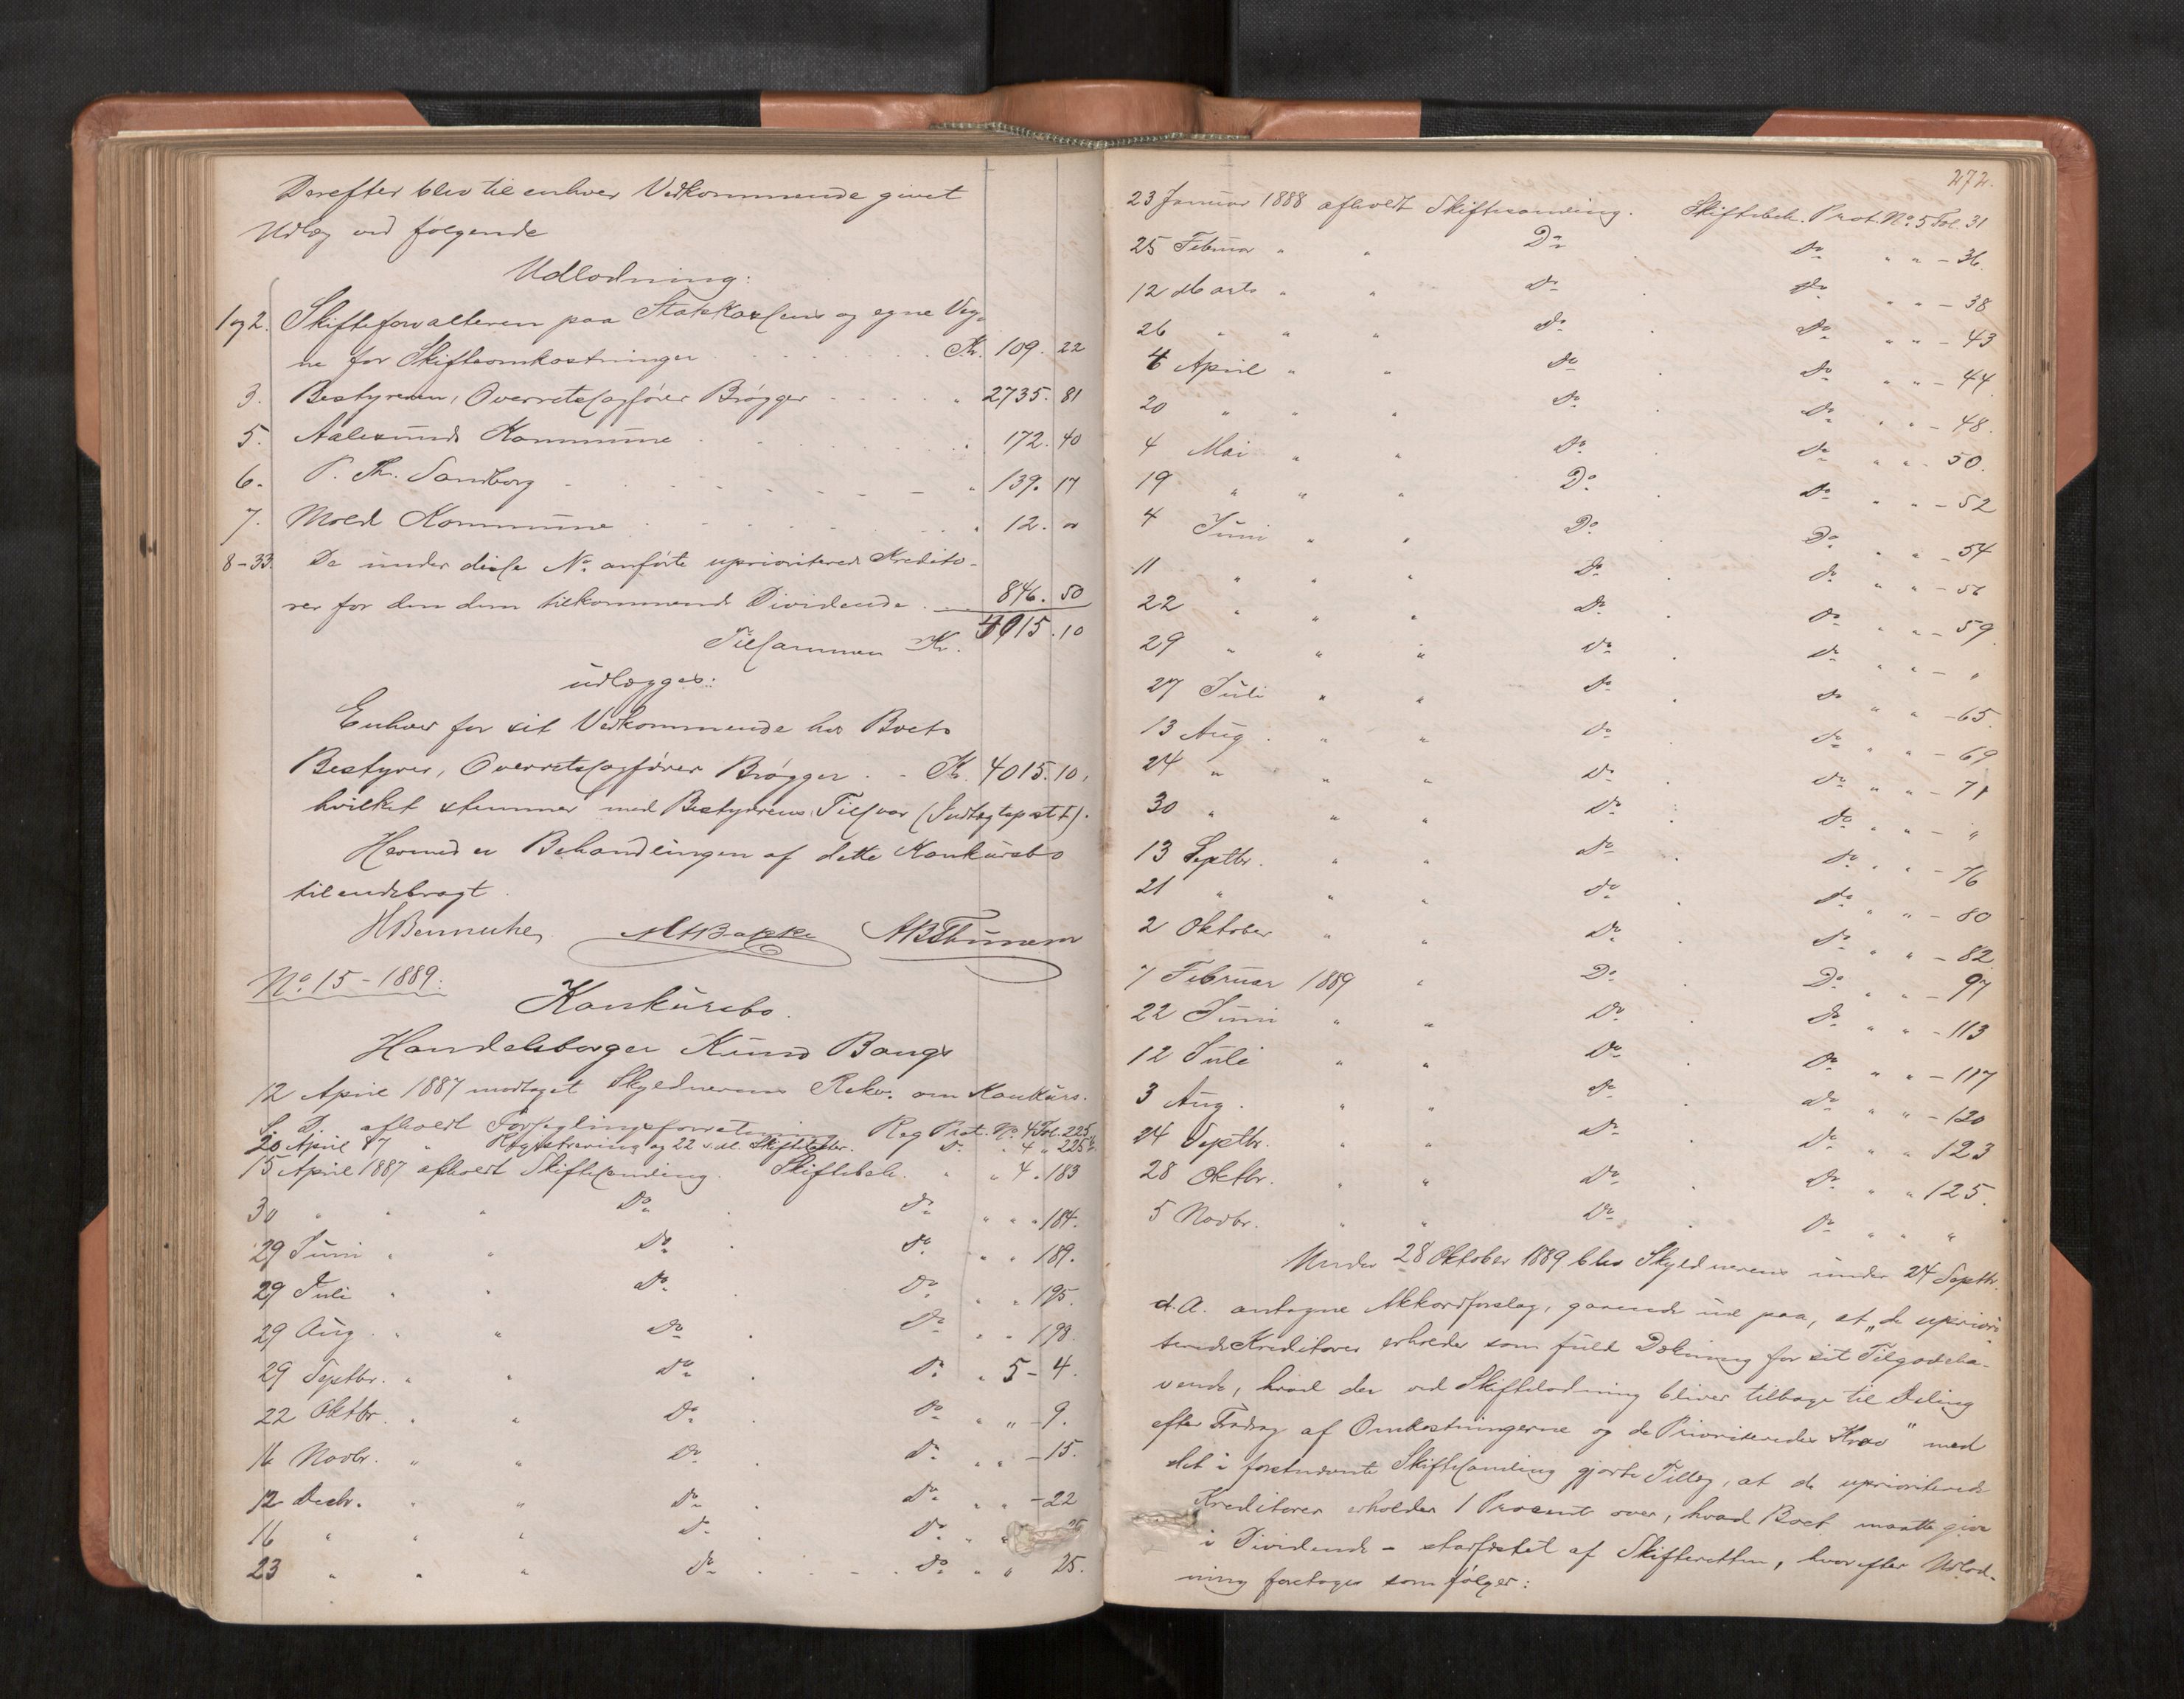 Derefter blev til enhver Vedkommende givet
Udlæg ved følgende
Udlodning:
1 og 2. Skifteforvalteren paa Statskassens og egne Veg-
ne for Skifteomkostninger . . . . Kr. 109. 22
3. Bestyreren, Overretssagfører Brøgger - - - - " 2735. 81
5. Aalesunds Kommune . . . . . " 172. 40
6. P. Th. Sandborg - - - - - - " 139. 17
7. Molde Kommune . . . . . " 12. "
8-33. De under disse No. anførte uprioriterede Kredito-
rer for den dem tilkommende Dividende . 846. 50
Tilsammen Kr. 4015. 10
udlægges:
Enhver for sit Vedkommende hos Boets
Bestyrer, Overretssagfører Brøgger . - Kr. 4015. 10,
hvilket stemmer med Bestyrerens Tilsvar (Indtægtspost I).
Hermed er Behandlingen af dette Konkursbo
tilendebragt.
No. 15 - 1889:
Konkursbo.
Handelsborger Knud Bangs
12 April 1887 modtaget Skyldnerens Rekv. om Konkurs.
S. D. afholdt Forseglingsforretning Reg. Prot. No. 4 Fol. 225
20 April 87 " Registrering og 22 s. M. Skifteefter. Reg D. " 4 " 225
15 April 1887 afholdt Skiftesamling. Skiftebeh. " " 4 " 183
30 " " " Do . Do " " " 184.
29 Juni " " Do . Do " " 189.
29 Juli " " Do Do " " 195.
29 Aug. " " Do . Do " " 198.
29 Septbr. " " Do . Do " " 5 - 4.
22 Oktbr. " " Do . Do " " - 9.
16 Novbr. " " Do . Do " " - 15.
12 Decbr. " " Do . Do " " - 22
16 " " " Do . Do " "
23 " " " Do . . - . Do " " 25.
272.
23 Januar 1888 afholdt Skiftesamling. Skiftebeh. Prot. No. 5 Fol. 31
25 Februar " " Do . Do " " - 36.
12 Marts " " Do . Do " " - 38
26 " " " Do . Do " " - 43
6 April " " Do . Do " " - 44
20 " " " Do . Do " " - 48.
4 Mai " " Do . Do " " - 50.
19 " " " Do . Do " " - 52
4 Juni " " Do . Do " " - 54
11 " " " Do . Do " " - 56
22 " " " Do . Do " " - 59
29 " " " Do . Do " " - "
27 Juli " " Do . Do " " - 65.
13 Aug. " " Do . Do " " - 69
24 " " " Do . Do " " - 71
30 " " " Do . Do " " - "
13 Septbr. " " Do . Do " " - 76
21 " " " Do . Do " " - 80
2 Oktober " " Do . Do " " - 82
7 Februar 1889 " Do . Do " " - 97
22 Juni " " Do . Do " " - 113
12 Juli " " Do . Do " " - 117
3 Aug. " " Do . Do " " - 120
24 Septbr. " " Do . Do " " 123
28 Oktbr. " " Do . Do " " 125.
5 Novbr. " " Do . Do " " "
Under 28 Oktober 1889 blev Skyldnerens under 24 Septbr.
d. A. antagne Akkordforslag, gaaende ud paa, at "de upriori-
terede Kreditorer erholder som fuld Dækning for sit Tilgodeha-
vende, hvad der ved Skiftelodning bliver tilbage til Deling
efter Fradrag af Omkostningerne og de Prioriteredes Krav" med
det i foretnævnte Skiftesamling gjorte Tillæg, at de uprioriterede
Kreditorer erholder 1 Procent over, hvad Boet maatte give
i Dividende - stadfæstet af Skifteretten, hvorefter Udlod-
ning foretages som følger: